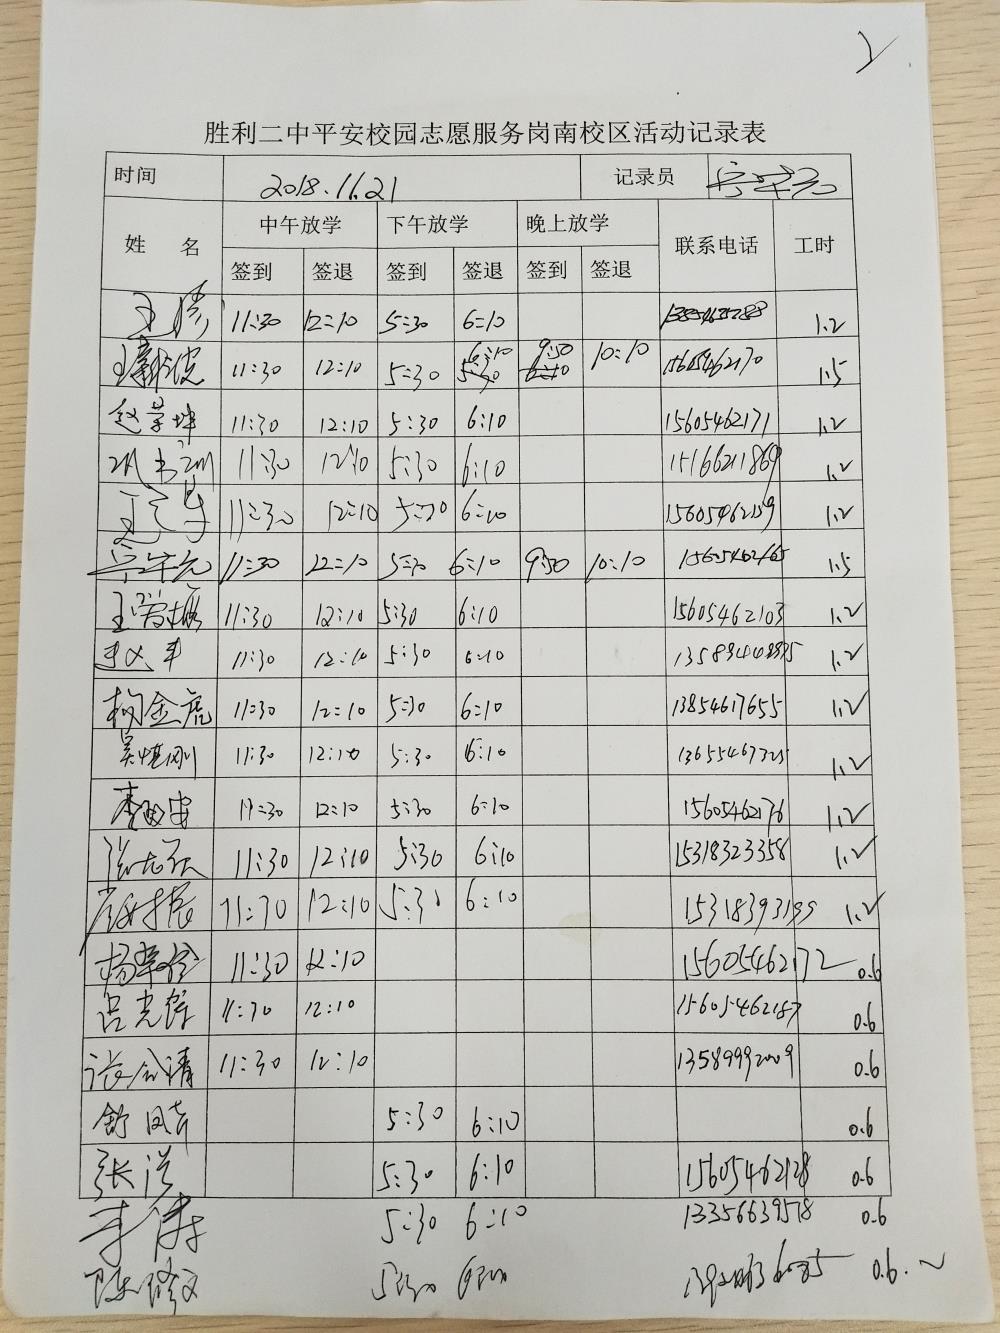 胜利二中平安校园志愿服务岗南校区活动记录表
时间 2018.11.21 记录员
姓 名 中午放学 下午放学 晚上放学 联系电话 工时
签到 签退 签到 签退 签到 签退
11:30 12:10 5:30 6:10 1.2
11:30 12:10 5:30 6:10 9:50 10:10 15605462170 1.5
赵荣坤 11:30 12:10 5:30 6:10 15605462171 1.2
11:30 12:10 5:30 6:10 15166211869 1.2
11:30 12:10 5:30 6:10 15605462159 1.2
11:30 12:10 5:30 6:10 9:50 10:10 15605462165 1.5
11:30 12:10 5:30 6:10 15605462103 1.2
11:30 12:10 5:30 6:10 1.2
杨金虎 11:30 12:10 5:30 6:10 13854617655 1.2
11:30 12:10 5:30 6:10 1.2
11:30 12:10 5:30 6:10 15605462176 1.2
11:30 12:10 5:30 6:10 15318323358 1.2
11:30 12:10 5:30 6:10 15318393199 1.2
11:30 12:10 15605462172 0.6
吕光辉 11:30 12:10 15605462187 0.6
11:30 12:10 13589992009 0.6
5:30 6:10 0.6
张洪 5:30 6:10 15605462128 0.6
李涛 5:30 6:10 13356639518 0.6
陈修文 0.6